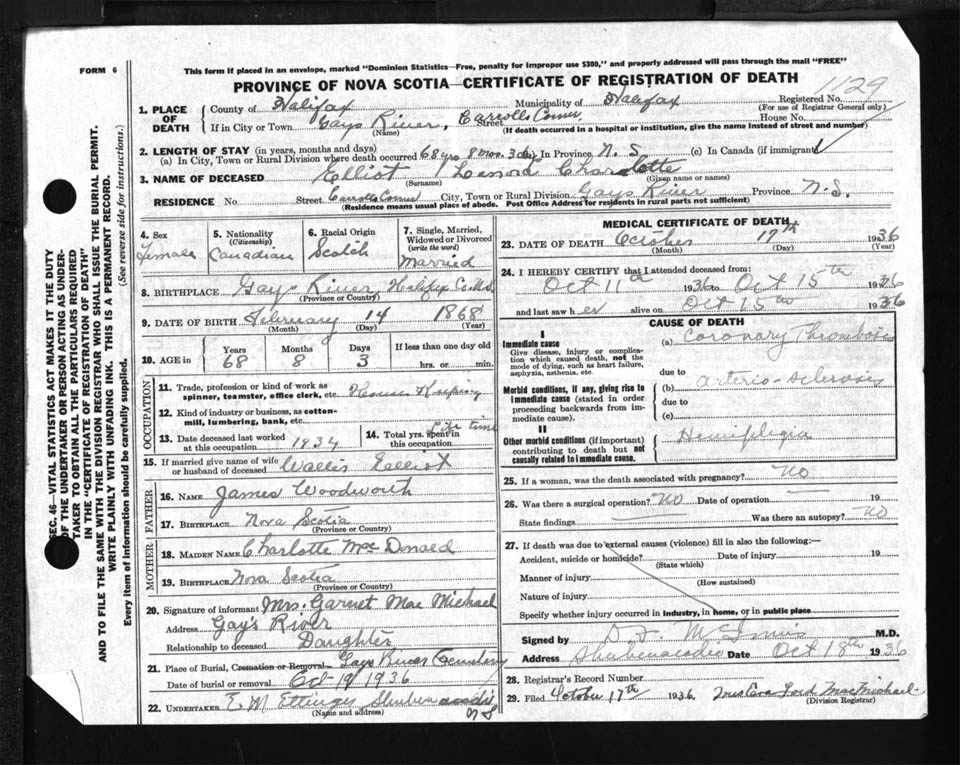 FORM 6
This form if placed in an envelope, marked "Dominion Statistics—Free, penalty for improper use $300," and properly addressed will pass through the mail "FREE"
PROVINCE OF NOVA SCOTIA—CERTIFICATE OF REGISTRATION OF DEATH
1129
1. PLACE OF DEATH
County of Halifax Municipality of Halifax Registered No.
(For use of Registrar General only)
If in City or Town Gays River, Carrolls Corner Street House No.
(Name) (If death occurred in a hospital or institution, give the name instead of street and number)
2. LENGTH OF STAY (in years, months and days)
(a) In City, Town or Rural Division where death occurred 68 yrs 8 mos. 3 days In Province N. S. (c) In Canada (if immigrant)
3. NAME OF DECEASED Elliot Charlotte
(Surname) (Given name or names)
RESIDENCE No. Street Carrolls Corner City, Town or Rural Division Gays River Province N.S.
(Residence means usual place of abode. Post Office Address for residents in rural parts not sufficient)
4. Sex
Female
5. Nationality
(Citizenship)
Canadian
6. Racial Origin
Scotch
7. Single, Married, Widowed or Divorced
(write the word)
Married
8. BIRTHPLACE Gays River Halifax Co. N.S.
(Province or Country)
9. DATE OF BIRTH February 14 1868
(Month) (Day) (Year)
10. AGE in
Years Months Days If less than one day old
68 8 3 hrs. or min.
OCCUPATION
11. Trade, profession or kind of work as spinner, teamster, office clerk, etc. House Keeping
12. Kind of industry or business, as cotton-mill, lumbering, bank, etc.
13. Date deceased last worked at this occupation 1934
14. Total yrs. spent in this occupation Life time
15. If married give name of wife or husband of deceased Elliot
FATHER
16. NAME James Woodworth
17. BIRTHPLACE Nova Scotia
(Province or Country)
MOTHER
18. MAIDEN NAME Charlotte Mac Donald
19. BIRTHPLACE Nova Scotia
(Province or Country)
20. Signature of informant Mrs. Garnet Mac Michael
Address Gay's River
Relationship to deceased Daughter
21. Place of Burial, Cremation or Removal Gays River Cemetery
Date of burial or removal Oct 19 1936
22. UNDERTAKER E. M Ettinger
N S
(Name and address)
MEDICAL CERTIFICATE OF DEATH
23. DATE OF DEATH October 17th 1936
(Month) (Day) (Year)
24. I HEREBY CERTIFY that I attended deceased from:
Oct 11th 1936 to Oct 15th 1936
and last saw her alive on Oct 15th 1936
CAUSE OF DEATH
I
Immediate cause
Give disease, injury or complication which caused death, not the mode of dying, such as heart failure, asphyxia, asthenia, etc.
(a) Coronary Thrombosis
due to
Morbid conditions, if any, giving rise to immediate cause (stated in order proceeding backwards from immediate cause).
(b) arterio-sclerosis
due to
(c)
II
Other morbid conditions (if important) contributing to death but not causally related to immediate cause.
Hemiplegia
25. If a woman, was the death associated with pregnancy? No
26. Was there a surgical operation? No Date of operation 19
State findings Was there an autopsy? No
27. If death was due to external causes (violence) fill in also the following:—
Accident, suicide or homicide? Date of injury 19
(State which)
Manner of injury
(How sustained)
Nature of injury
Specify whether injury occurred in industry, in home, or in public place
Signed by M.D.
Address Shubenacadie Date Oct 18th 1936
28. Registrar's Record Number
29. Filed October 17th 1936 MacMichael
(Division Registrar)
SEC. 46—VITAL STATISTICS ACT MAKES IT THE DUTY
OF THE UNDERTAKER OR PERSON ACTING AS UNDER-
TAKER TO OBTAIN ALL THE PARTICULARS REQUIRED
IN THE "CERTIFICATE OF REGISTRATION OF DEATH"
AND TO FILE THE SAME WITH THE DIVISION REGISTRAR WHO SHALL ISSUE THE BURIAL PERMIT.
WRITE PLAINLY WITH UNFADING INK. THIS IS A PERMANENT RECORD.
Every item of Information should be carefully supplied. (See reverse side for instructions.)